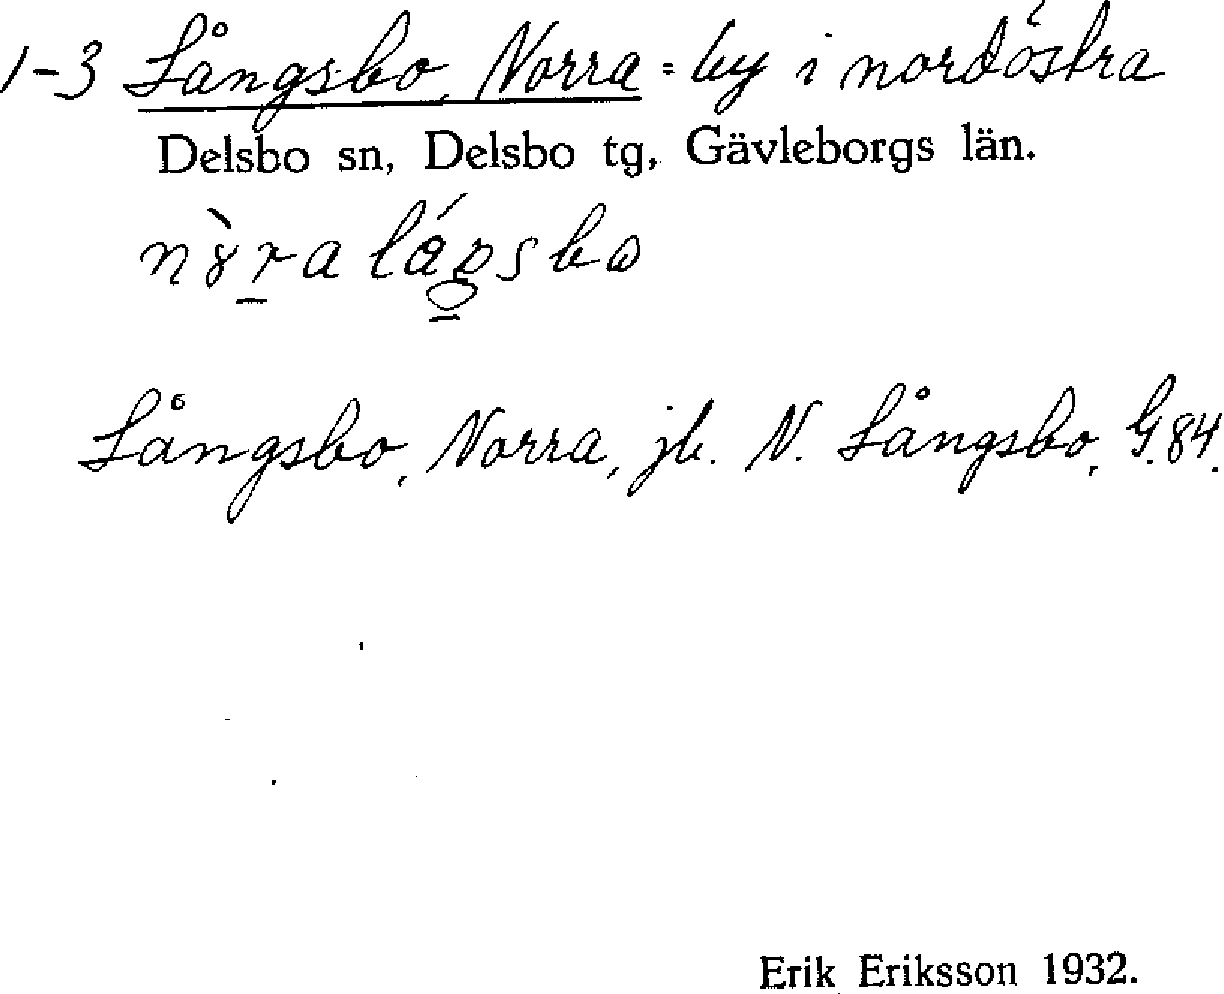 1-3 Långsbo, Norra = by i nordöstra
Delsbo sn, Delsbo tg, Gävleborgs län.
Långsbo, Norra, jb. N. Långsbo, G.84.
Erik Eriksson 1932.